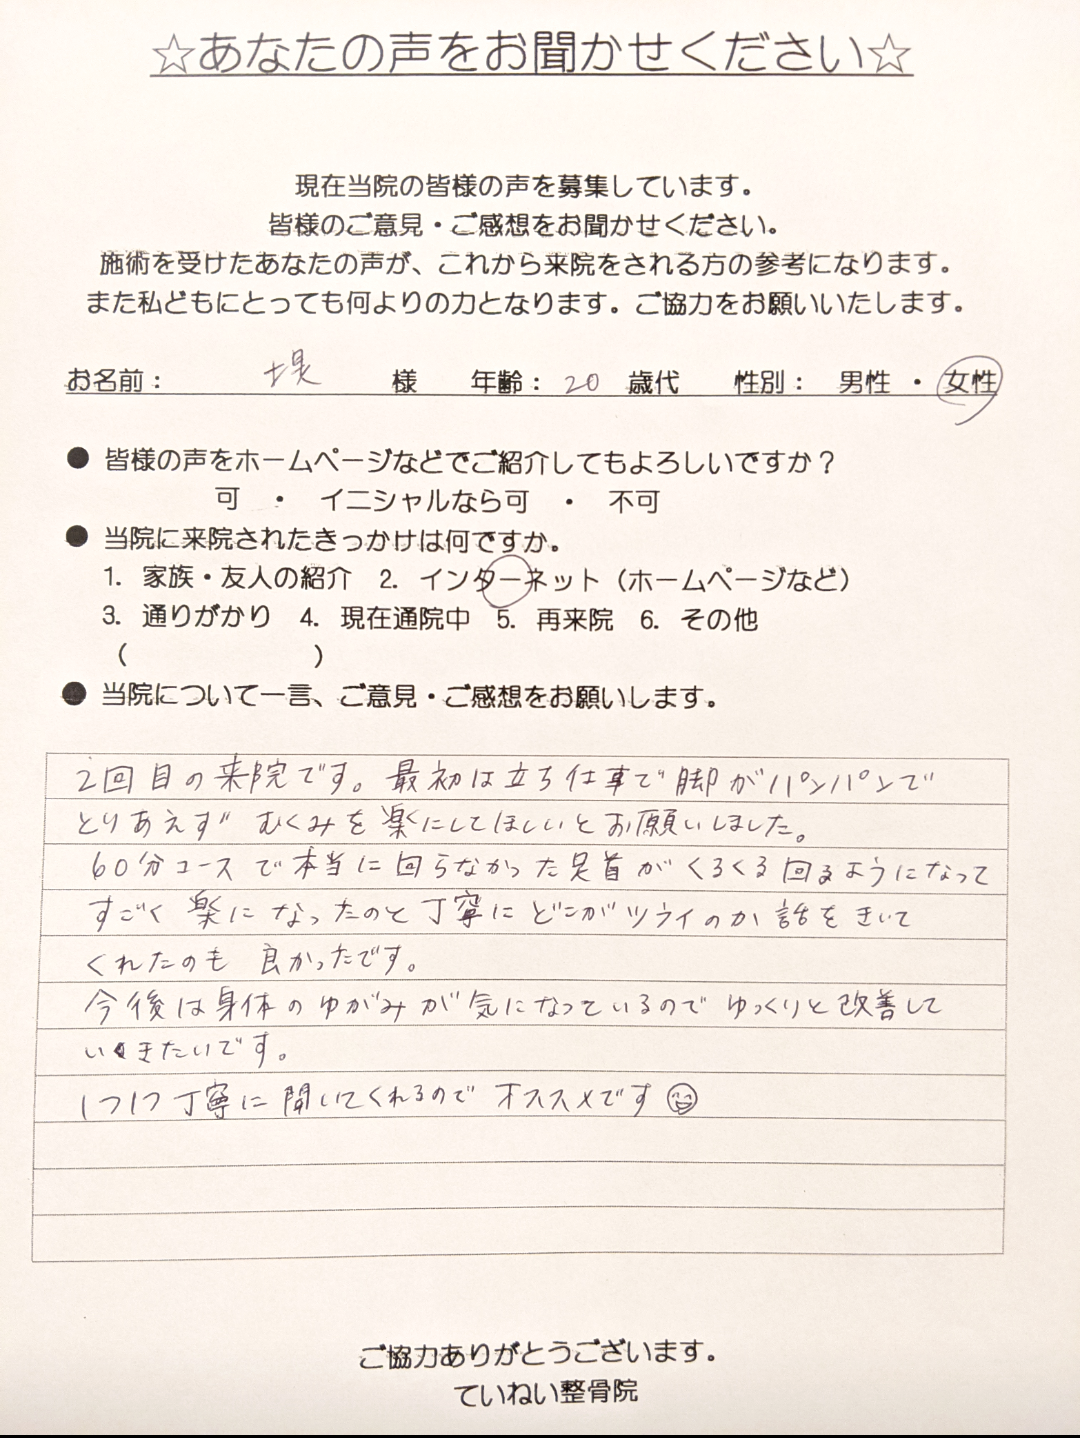 ☆あなたの声をお聞かせください☆
現在当院の皆様の声を募集しています。
皆様のご意見・ご感想をお聞かせください。
施術を受けたあなたの声が、これから来院をされる方の参考になります。
また私どもにとっても何よりの力となります。ご協力をお願いいたします。
お名前： 堤 様 年齢： 20 歳代 性別： 男性 ・ 女性
● 皆様の声をホームページなどでご紹介してもよろしいですか？
可 ・ イニシャルなら可 ・ 不可
● 当院に来院されたきっかけは何ですか。
1. 家族・友人の紹介 2. インターネット（ホームページなど）
3. 通りがかり 4. 現在通院中 5. 再来院 6. その他
（ ）
● 当院について一言、ご意見・ご感想をお願いします。
2回目の来院です。最初は立ち仕事で脚がパンパンで
とりあえず むくみを楽にしてほしいとお願いしました。
60分コースで本当に回らなかった足首がくるくる回るようになって
すごく楽になったのと丁寧にどこがツライのか話をきいて
くれたのも 良かったです。
今後は身体のゆがみが気になっているのでゆっくりと改善して
いきたいです。
1つ1つ丁寧に聞いてくれるので オススメです
ご協力ありがとうございます。
ていねい整骨院